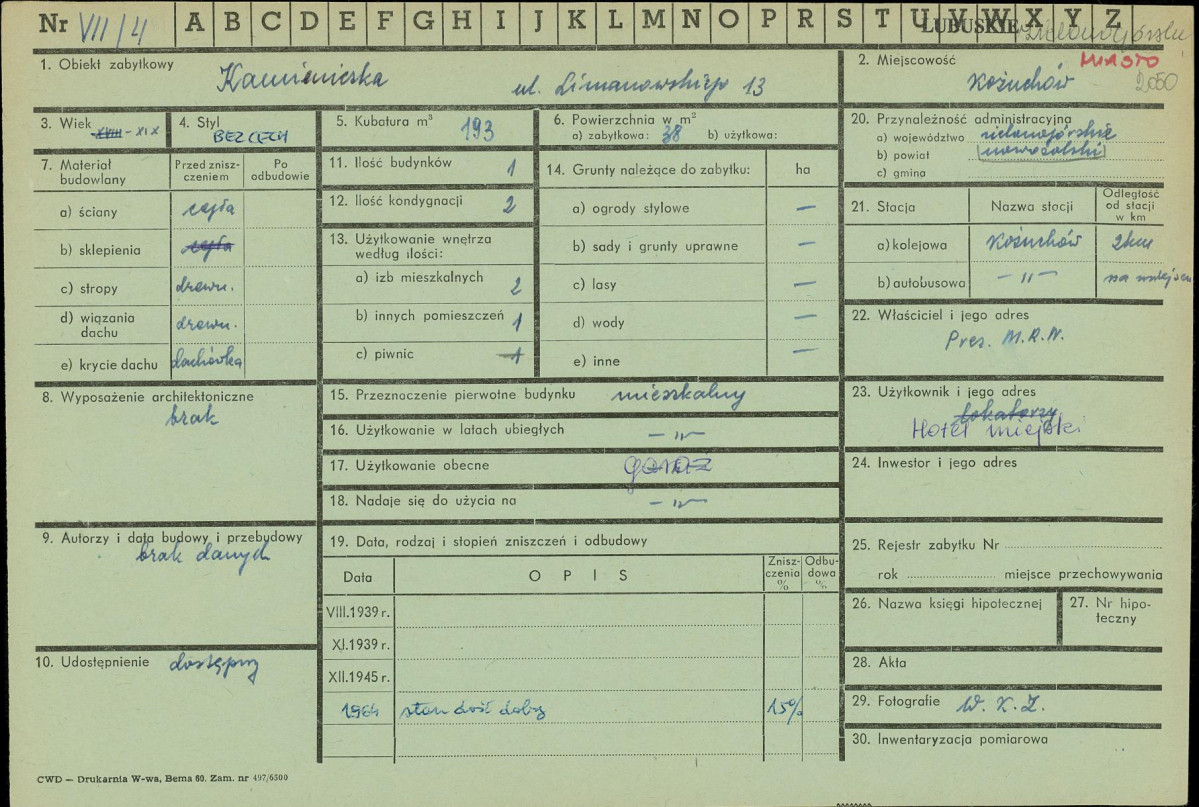 Nr VII/4 A B C D E F G H I J K L M N O P R S T U V W X Y Z
LUBUSKIE
1. Obiekt zabytkowy Kamieniczka ul. Limanowskiego 13
2. Miejscowość MIASTO
Kożuchów 2050
3. Wiek XVIII - XIX
4. Styl BEZ CECH
5. Kubatura m³ 193
6. Powierzchnia w m²
a) zabytkowa: 38 b) użytkowa:
20. Przynależność administracyjna
a) województwo zielonogórskie
b) powiat nowosolski
c) gmina
7. Materiał budowlany
Przed zniszczeniem
Po odbudowie
a) ściany cegła
b) sklepienia cegła
c) stropy drewn.
d) wiązania dachu drewn.
e) krycie dachu dachówka
11. Ilość budynków 1
12. Ilość kondygnacji 2
13. Użytkowanie wnętrza
według ilości:
a) izb mieszkalnych 2
b) innych pomieszczeń 1
c) piwnic 1
14. Grunty należące do zabytku: ha
a) ogrody stylowe —
b) sady i grunty uprawne —
c) lasy —
d) wody —
e) inne —
21. Stacja Nazwa stacji Odległość od stacji w km
a) kolejowa Kożuchów 2 km
b) autobusowa —"— na miejscu
22. Właściciel i jego adres
Prez. M.R.N.
8. Wyposażenie architektoniczne
brak
15. Przeznaczenie pierwotne budynku mieszkalny
16. Użytkowanie w latach ubiegłych —"—
17. Użytkowanie obecne
18. Nadaje się do użycia na —"—
23. Użytkownik i jego adres
lokatorzy
Hotel miejski
24. Inwestor i jego adres
9. Autorzy i data budowy i przebudowy
brak danych
19. Data, rodzaj i stopień zniszczeń i odbudowy
Data OPIS Zniszczenia % Odbudowa %
VIII.1939 r.
XI.1939 r.
XII.1945 r.
1964 stan dość dobry 15%
25. Rejestr zabytku Nr
rok miejsce przechowywania
26. Nazwa księgi hipotecznej
27. Nr hipoteczny
10. Udostępnienie dostępny
28. Akta
29. Fotografie W. K. Z.
30. Inwentaryzacja pomiarowa
CWD — Drukarnia W-wa, Bema 60. Zam. nr 497/6500